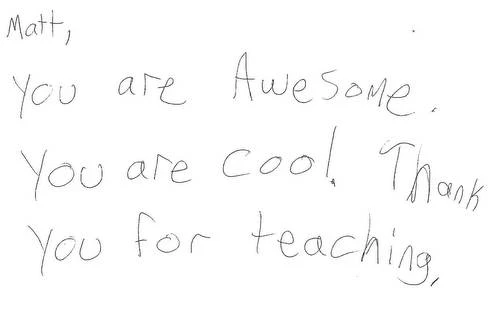 Matt,
You are Awesome.
You are cool! Thank
you for teaching.